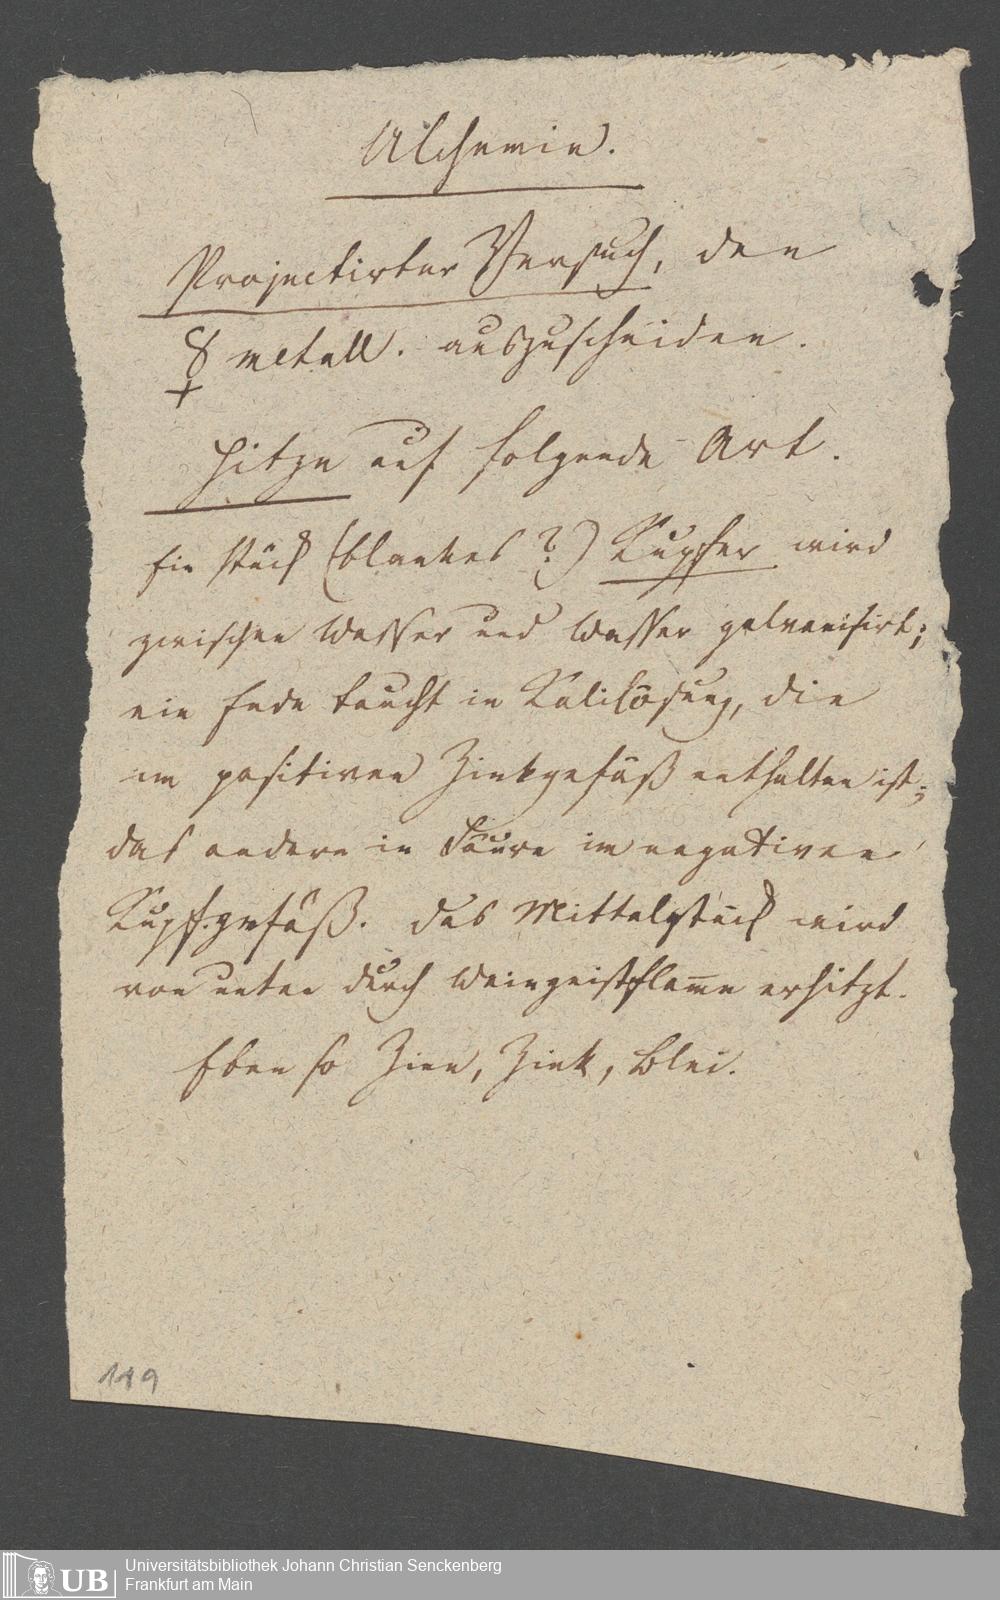 Alchemie.
Projectirter Versuch, den
☿ metall. auszuscheiden.
Hitze auf folgende Art.
Ein Stück (blankes?) Kupfer wird
zwischen Wasser und Wasser galvanisirt;
ein Ende taucht in Kalilösung, die
im positiven Zinkgefäß enthalten ist;
das andere in Säure im negativen
Kupf.gefäß. Das Mittelstück wird
von unten durch Weingeistflam̅e erhitzt.
Eben so Zinn, Zink, Blei.
119
UB
Universitätsbibliothek Johann Christian Senckenberg
Frankfurt am Main